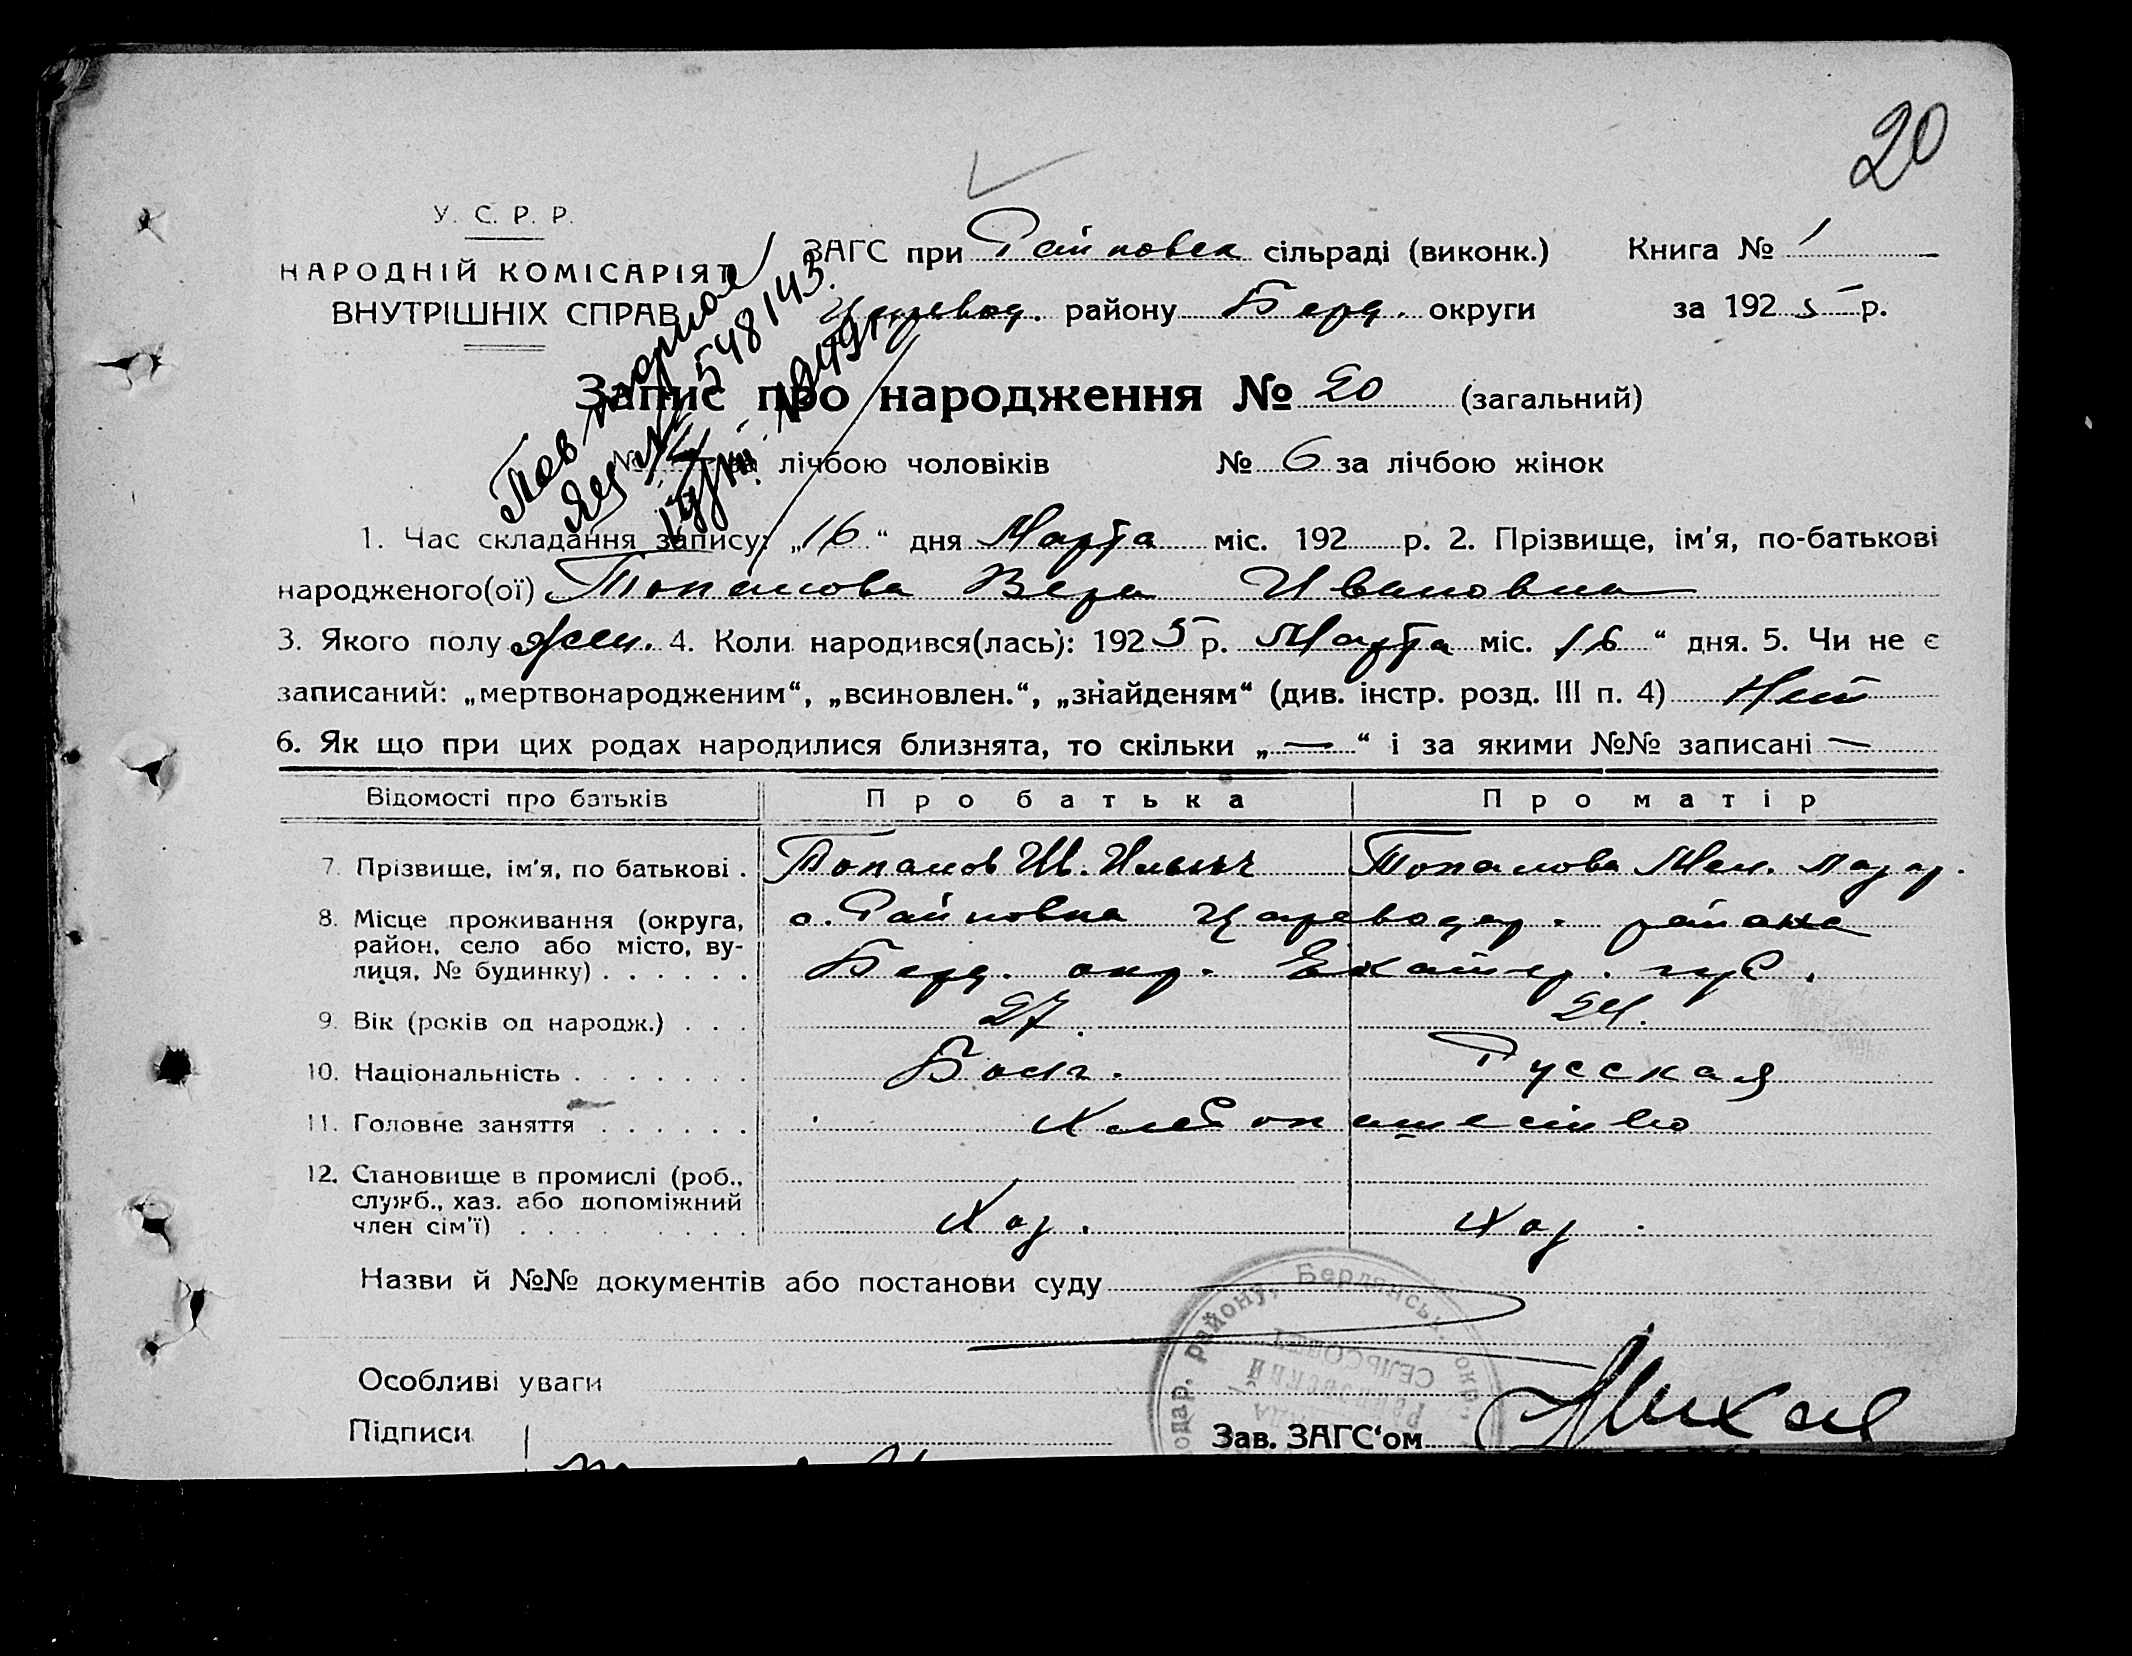 20
У. С. Р. Р.
НАРОДНІЙ КОМІСАРІЯТ
ВНУТРІШНІХ СПРАВ
ЗАГС при Райновск сільраді (виконк.) Книга № 1
Царевод. району Берд. округи за 1925 р.
Запис про народження № 20 (загальний)
№ за лічбою чоловіків № 6 за лічбою жінок
548143
1. Час складання запису: „16“ дня Марта міс. 192 р. 2. Прізвище, ім'я, по-батькові
народженого(ої) Топалова Вера Ивановна
3. Якого полу жен. 4. Коли народився(лась): 1925 р. Марта міс. 16 “ дня. 5. Чи не є
записаний: „мертвонародженим“, „всиновлен.“, „знайденям“ (див. інстр. розд. III п. 4) Нет
6. Як що при цих родах народилися близнята, то скільки „—“ і за якими №№ записані —
Відомості про батьків Про батька Про матір
7. Прізвище, ім'я, по батькові . Топалов Ив. Ильич Топалова Мел. Лазар.
8. Місце проживання (округа, район, село або місто, вулиця, № будинку) . . . . . . с. Райновка Цареводар. района
Берд. окр. Екатер. губ.
9. Вік (років од народж.) . . . 27 24.
10. Національність . . . . . . . Болг. Русская
11. Головне заняття . . . . . . Хлебопашество
12. Становище в промислі (роб., служб., хаз. або допоміжний член сім'ї) . . . . . . . Хаз. Хаз.
Назви й №№ документів або постанови суду
Особливі уваги
одар. району, Бердянськ. окр.,
СЕЛЬСОВЕТ
Підписи
Зав. ЗАГС‘ом